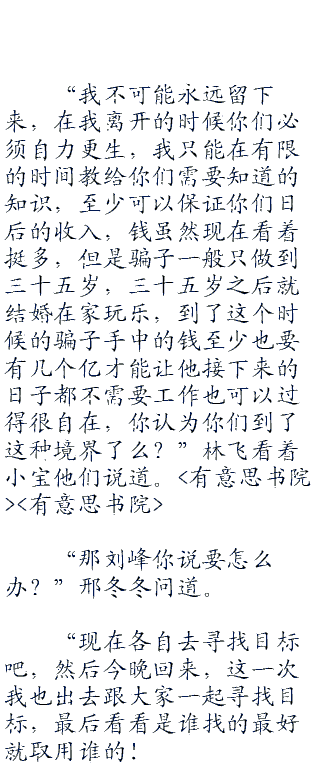 “我不可能永远留下
来，在我离开的时候你们必
须自力更生，我只能在有限
的时间教给你们需要知道的
知识，至少可以保证你们日
后的收入，钱虽然现在看着
挺多，但是骗子一般只做到
三十五岁，三十五岁之后就
结婚在家玩乐，到了这个时
候的骗子手中的钱至少也要
有几个亿才能让他接下来的
日子都不需要工作也可以过
得很自在，你认为你们到了
这种境界了么？”林飞看着
小宝他们说道。<有意思书院
><有意思书院>
“那刘峰你说要怎么
办？”邢冬冬问道。
“现在各自去寻找目标
吧，然后今晚回来，这一次
我也出去跟大家一起寻找目
标，最后看看是谁找的最好
就取用谁的！